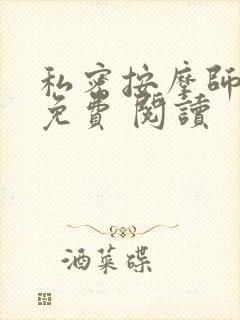 私密按摩師
免費 閱讀
酒菜碟